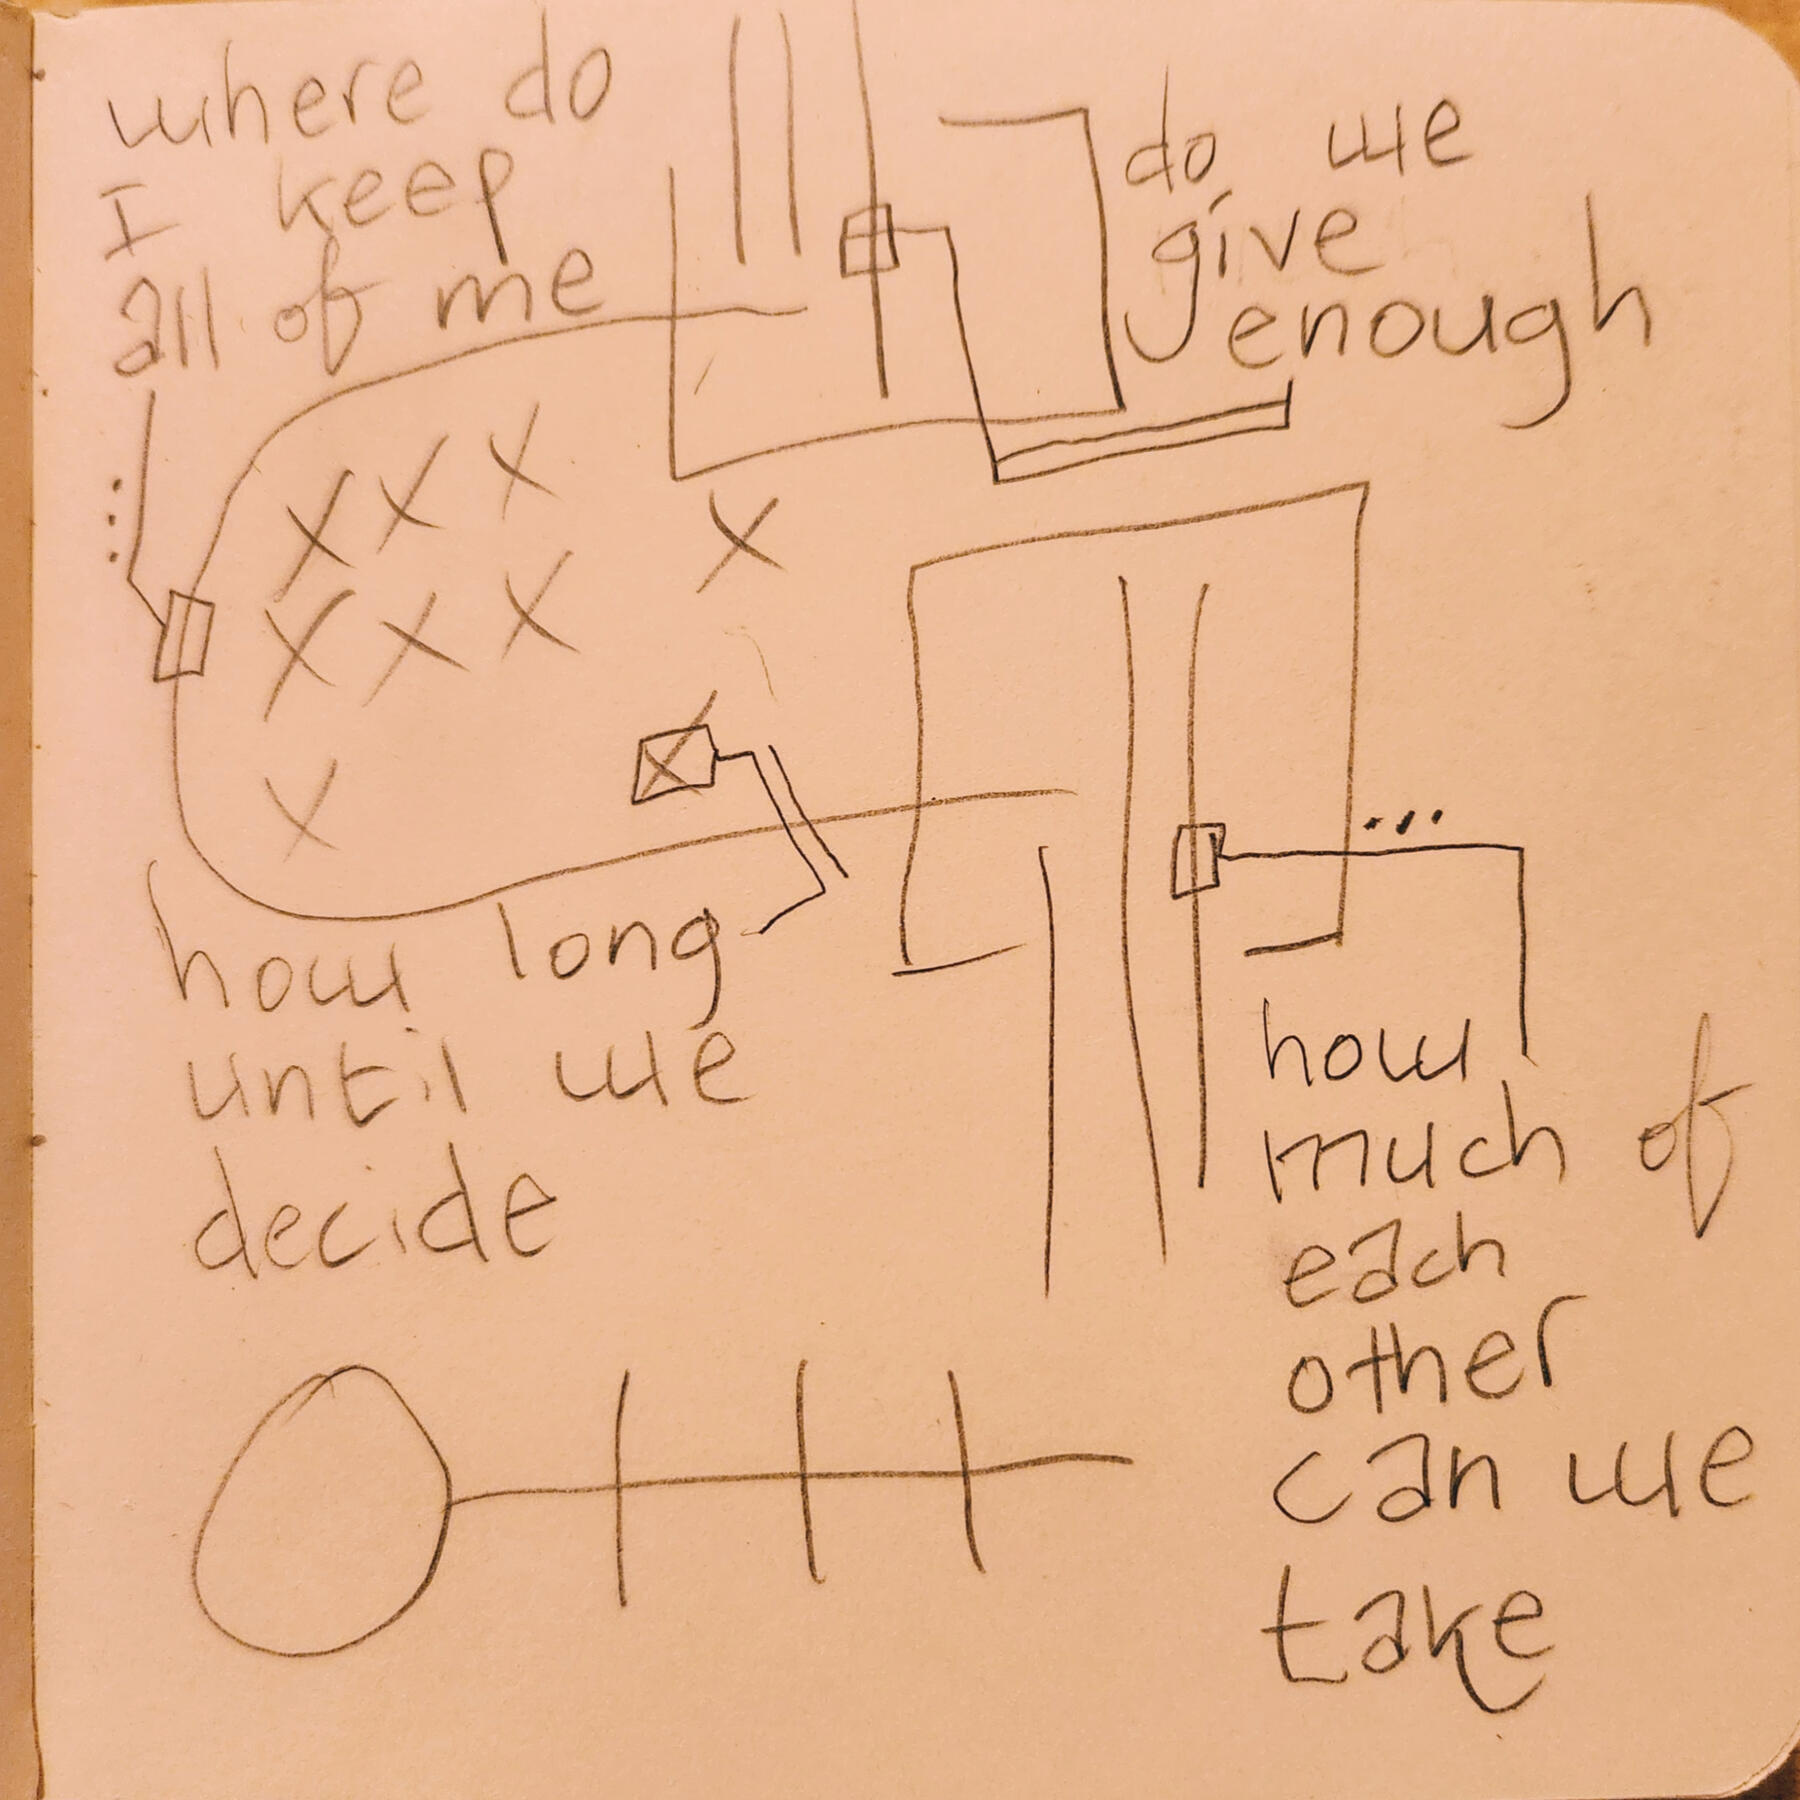 where do
I keep
all of me
do we
give
enough
how long
until we
decide
how
much of
each
other
can we
take